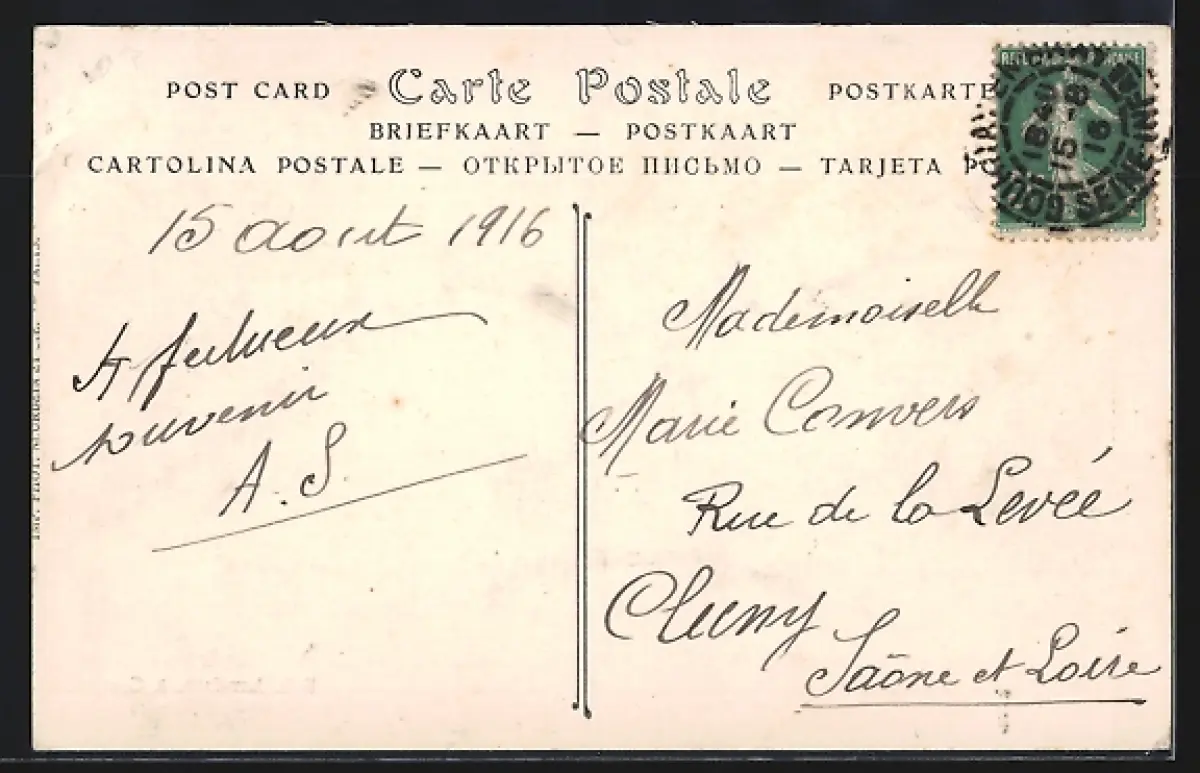 POST CARD Carte Postale POSTKARTE
BRIEFKAART — POSTKAART
CARTOLINA POSTALE — ОТКРЫТОЕ ПИСЬМО — TARJETA
15 aout 1916
Affectueux
souvenir
A. S.
Mademoiselle
Marie Convers
Rue de la Levée
Cluny
Saône et Loire
18 40
15 - 8
16
SEINE
IMP. PHOT.